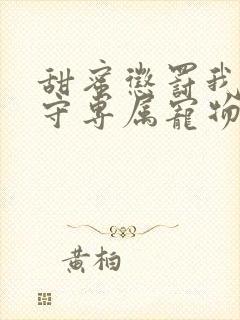 甜蜜惩罚我
守专属宠物
黄柏